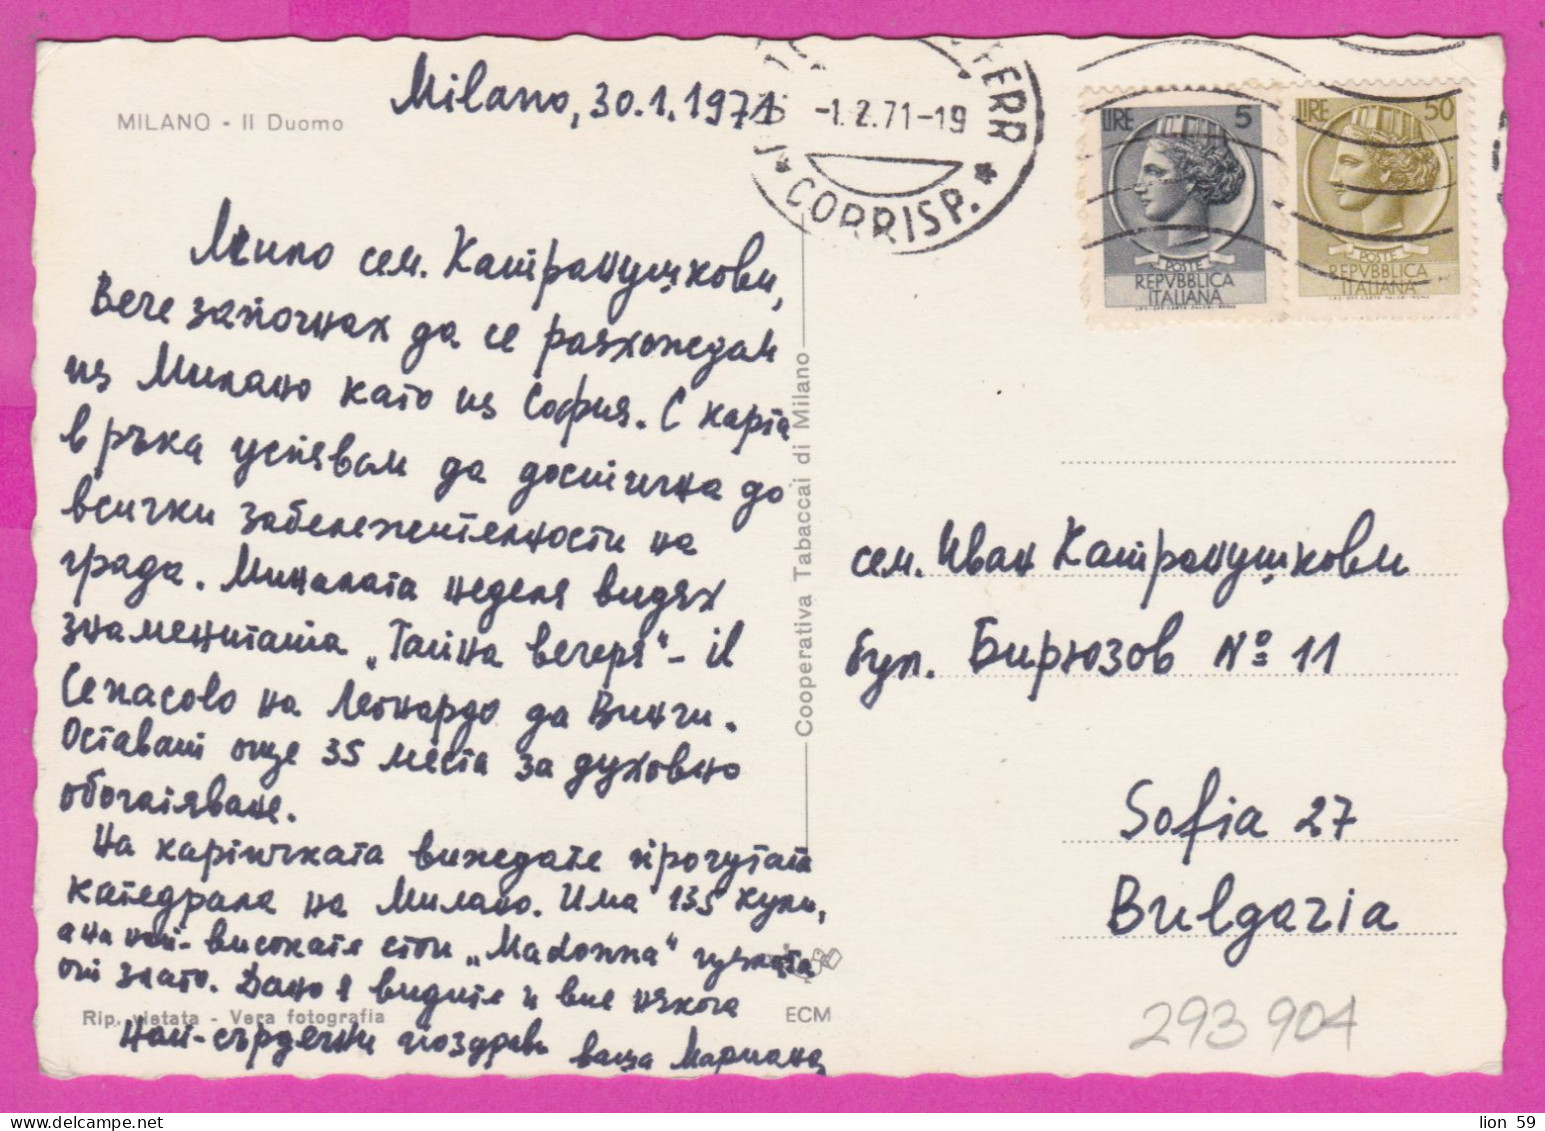 MILANO - Il Duomo
Milano, 30.1.1971
-1.2.71-19
FERR
CORRISP.
LIRE 5
POSTE
REPVBBLICA
ITALIANA
LIRE 50
POSTE
REPVBBLICA
ITALIANA
Мило сем. Катранушкови,
Вече започнах да се разхождам
из Милано като из София. С карта
в ръка успявам да достигна до
всички забележителности на
града. Миналата неделя видях
знаменитата „Тайна вечеря" - il
на Леонардо да Винчи.
Остават още 35 места за духовно
обогатяване.
На картичката виждате прочутата
катедрала на Милано. Има 135 кули,
а на най-високата стои „Madonna"
от злато. Дано я видите и вие някога
Най-сърдечни поздрави ваша Мариана
Rip. vietata - Vera fotografia
ECM
Cooperativa Tabaccai di Milano
сем. Иван Катранушкови
бул. Бирюзов № 11
Sofia 27
Bulgaria
293904
lion 59